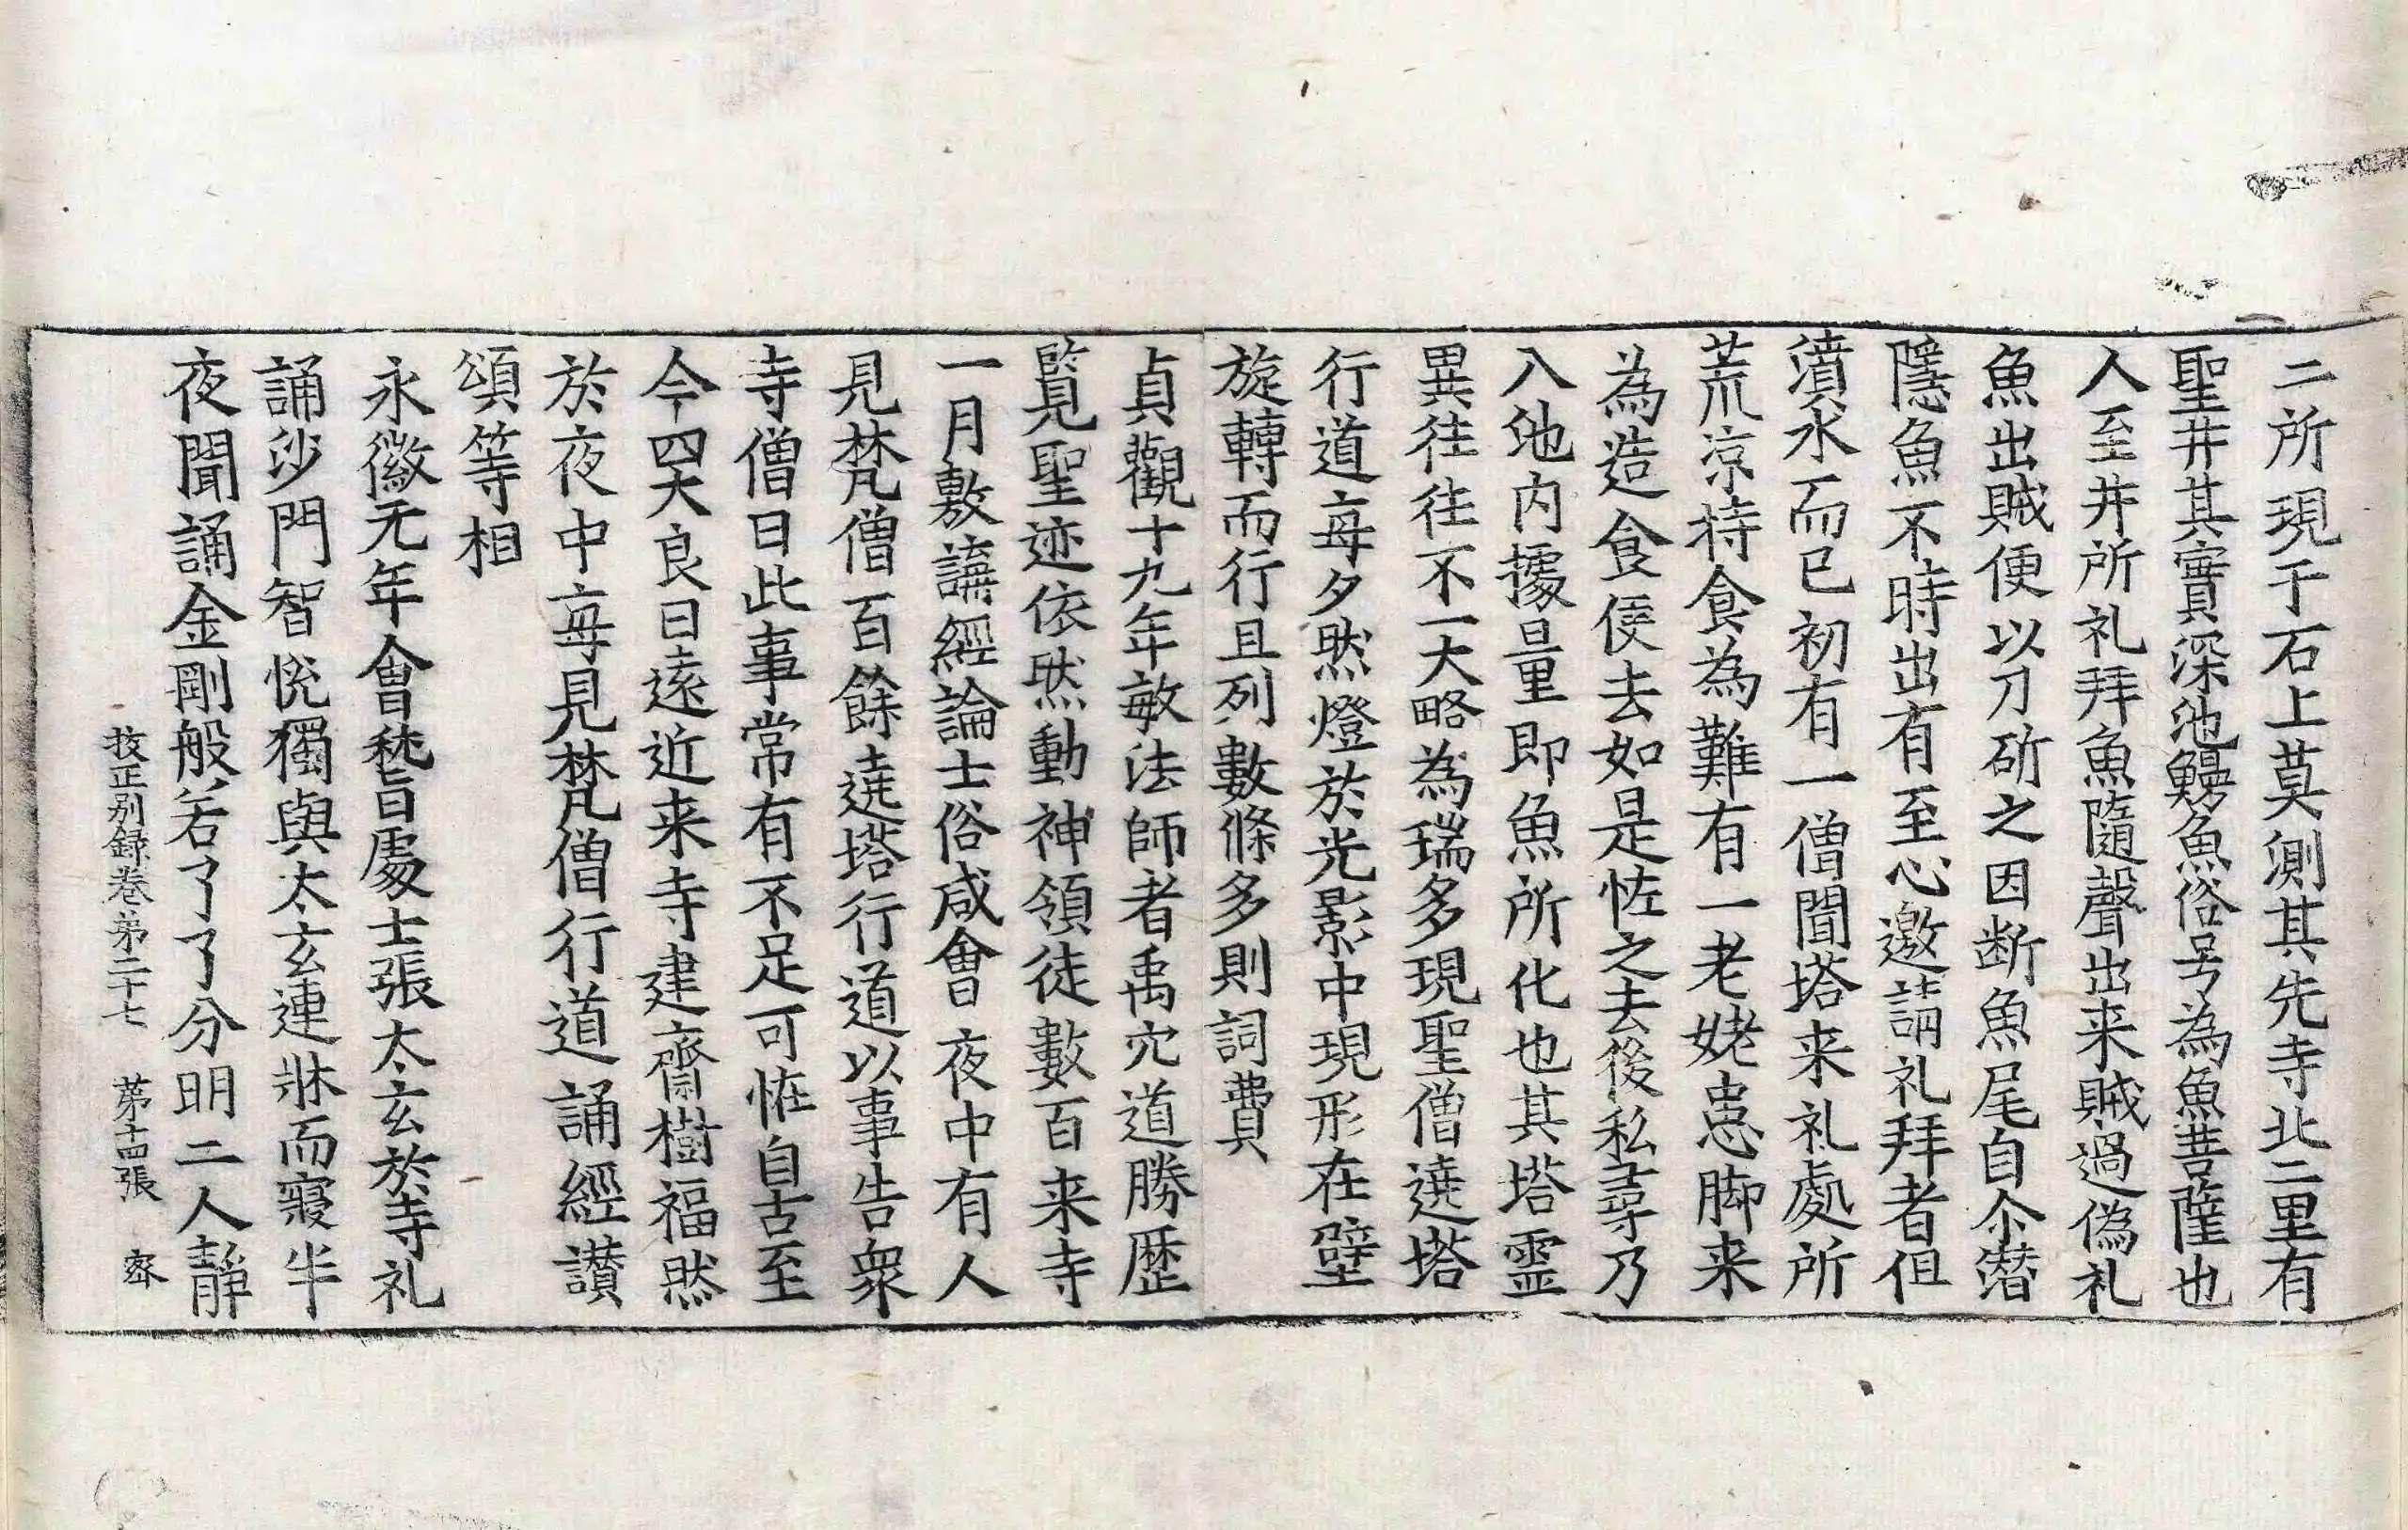 二所現于石上莫測其先寺北二里有
聖井其實深池鰻魚俗号為魚菩薩也
人至井所礼拜魚隨聲出来賊過偽礼
魚出賊便以刀斫之因断魚尾自尒潜
隱魚不時出有至心邀請礼拜者但
濆水而已初有一僧聞塔来礼處所
荒凉持食為難有一老姥患脚来
為造食便去如是恠之去後私尋乃
入池内據量即魚所化也其塔霊
異往往不一大略為瑞多現聖僧遶塔
行道每夕然燈於光影中現形在壁
旋轉而行且列數條多則詞費
貞觀十九年敏法師者禹穴道勝歷
覧聖迹依然動神領徒數百来寺
一月敷講經論士俗咸會夜中有人
見梵僧百餘遶塔行道以事告衆
寺僧曰此事常有不足可恠自古至
今四大良日遠近来寺建齋樹福然
於夜中每見梵僧行道誦經讃
頌等相
永徽元年會嵇旨處士張太玄於寺礼
誦沙門智恱獨與太玄連牀而寢半
夜聞誦金剛般若了了分明二人静
挍正别録卷弟二十七　苐十四張　宻